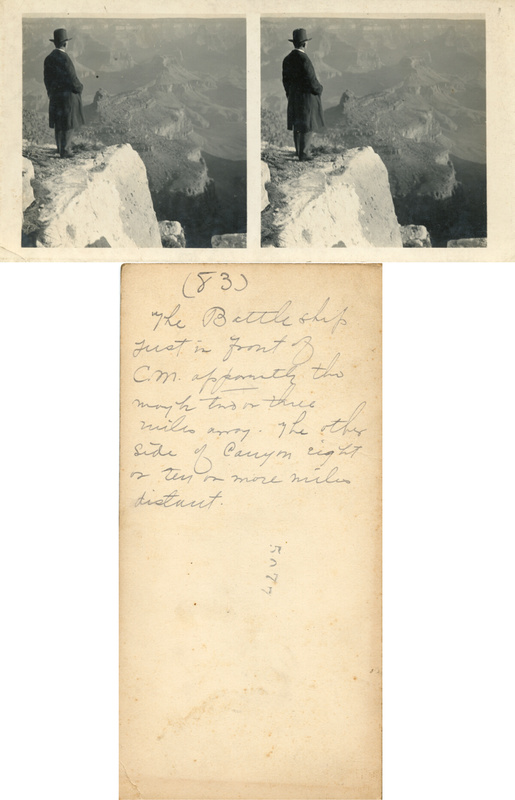 (83)
The Battle ship
Just in front of
C.M. apparently tho
maybe two or three
miles away. The other
side of Canyon eight
or ten or more miles
distant.